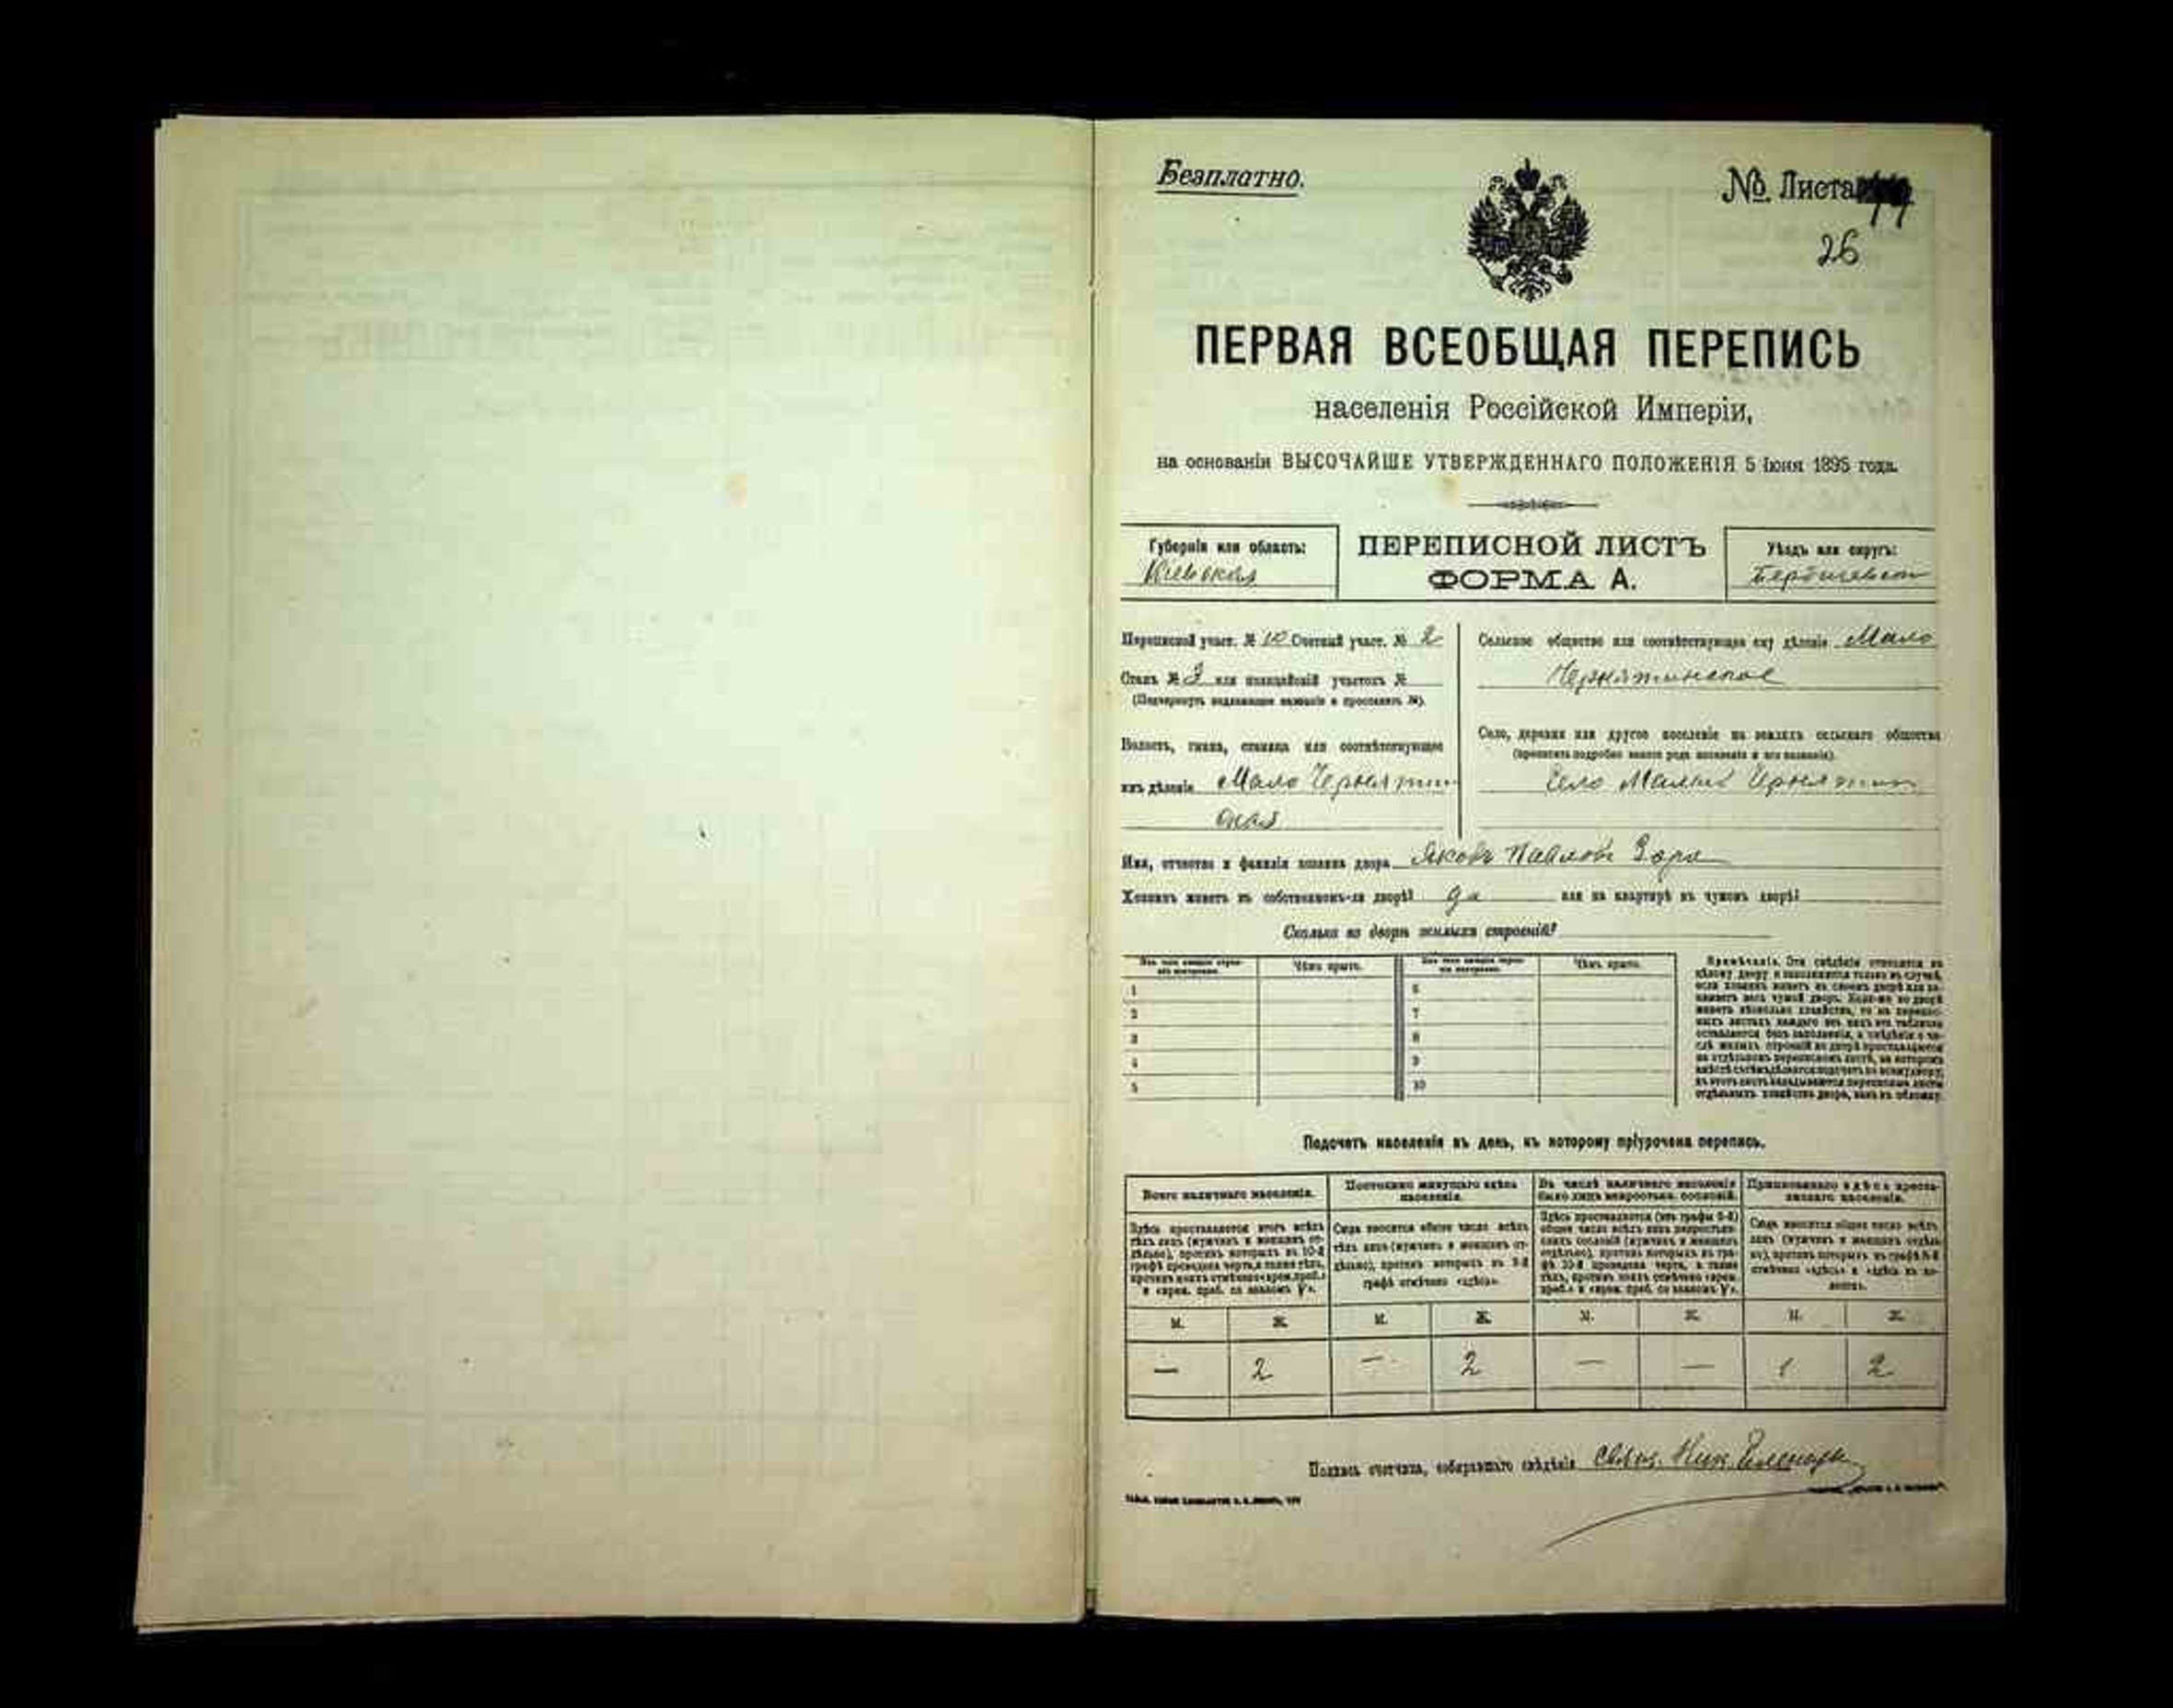 Безплатно.
№ Листа
26
ПЕРВАЯ ВСЕОБЩАЯ ПЕРЕПИСЬ
населенія Россійской Имперіи,
на основаніи ВЫСОЧАЙШЕ УТВЕРЖДЕННАГО ПОЛОЖЕНІЯ 5 Іюня 1895 года.
Губернія или область:
Кіевская
ПЕРЕПИСНОЙ ЛИСТЪ
ФОРМА А.
Уѣздъ или округъ:
Бердичевск
Переписной участ. № 10 Счетный участ. № 2
Станъ № 3 или полицейскій участокъ №
(Подчеркнуть надлежащее названіе и проставить №).
Волость, гмина, станица или соотвѣтствующее
имъ дѣленіе Мало Чернятин
ская
Сельское общество или соотвѣтствующее ему дѣленіе Мало
Чернятинское
Село, деревня или другое поселеніе на земляхъ сельскаго общества
(прописать подробно какого рода поселеніе и его названіе).
Село Малый Чернятин
Имя, отчество и фамилія хозяина двора Яковъ Павловъ Зара
Хозяинъ живетъ въ собственномъ-ли дворѣ? да или на квартирѣ въ чужомъ дворѣ?
Сколько во дворѣ жилыхъ строеній?
Чѣмъ крыто.
Чѣмъ крыто.
1
2
3
4
5
6
7
8
9
10
Примѣчаніе. Эти свѣдѣнія относятся къ
цѣлому двору и заполняются только въ случаѣ,
если хозяинъ живетъ въ своемъ дворѣ или за-
нимаетъ весь чужой дворъ. Если-же во дворѣ
живетъ нѣсколько хозяйствъ, то на перепис-
ныхъ листахъ каждаго изъ нихъ эта таблица
оставляется безъ заполненія, а свѣдѣнія о чи-
слѣ жилыхъ строеній во дворѣ проставляются
на отдѣльномъ переписномъ листѣ, на которомъ
вмѣстѣ съ тѣмъ дѣлается подсчетъ по всему двору;
въ этотъ листъ вкладываются переписные листы
отдѣльныхъ хозяйствъ двора, какъ въ обложку.
Подсчетъ населенія въ день, къ которому пріурочена перепись.
Всего наличнаго населенія.
Постоянно живущаго здѣсь
населенія.
Въ числѣ наличнаго населенія
было лицъ некрестьян. сословій.
Приписаннаго здѣсь кресть-
янскаго населенія.
Здѣсь проставляется итогъ всѣхъ
тѣхъ лицъ (мужчинъ и женщинъ от-
дѣльно), противъ которыхъ въ 10-й
графѣ проведена черта, а также тѣхъ,
противъ коихъ отмѣчено «врем. преб.»
и «врем. преб. со знакомъ V».
Сюда вносится общее число всѣхъ
тѣхъ лицъ (мужчинъ и женщинъ от-
дѣльно), противъ которыхъ въ 9-й
графѣ отмѣчено «здѣсь».
Здѣсь проставляется (изъ графы 6-й)
общее число всѣхъ лицъ некрестьян-
скихъ сословій (мужчинъ и женщинъ
отдѣльно), противъ которыхъ въ гра-
фѣ 10-й проведена черта, а также
тѣхъ, противъ коихъ отмѣчено «врем.
преб.» и «врем. преб. со знакомъ V».
Сюда вносится общее число всѣхъ
лицъ (мужчинъ и женщинъ отдѣль-
но), противъ которыхъ въ графѣ 8-й
отмѣчено «здѣсь» и «здѣсь въ во-
лости».
М. Ж. М. Ж. М. Ж. М. Ж.
— 2 — 2 — — 1 2
Подпись счетчика, собиравшаго свѣдѣнія свящ. Ник.